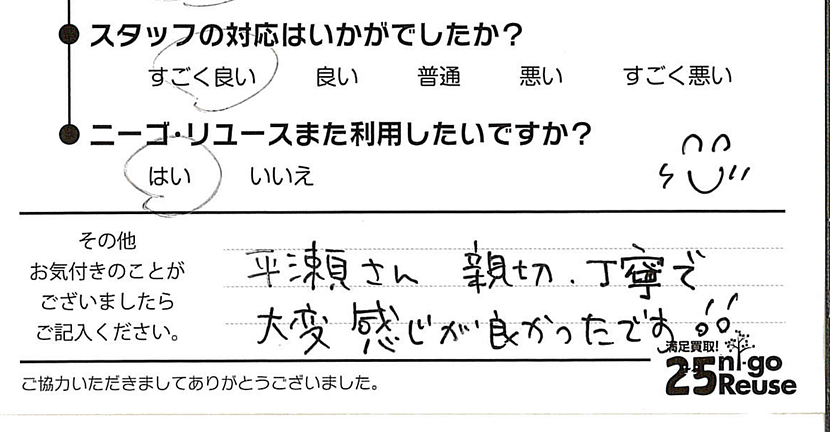 スタッフの対応はいかがでしたか？
すごく良い 良い 普通 悪い すごく悪い
ニーゴ・リユースまた利用したいですか？
はい いいえ
その他
お気付きのことが
ございましたら
ご記入ください。
平瀬さん 親切、丁寧で
大変 感じが良かったです!!
満足買取!
25 ni-go
Reuse
ご協力いただきましてありがとうございました。